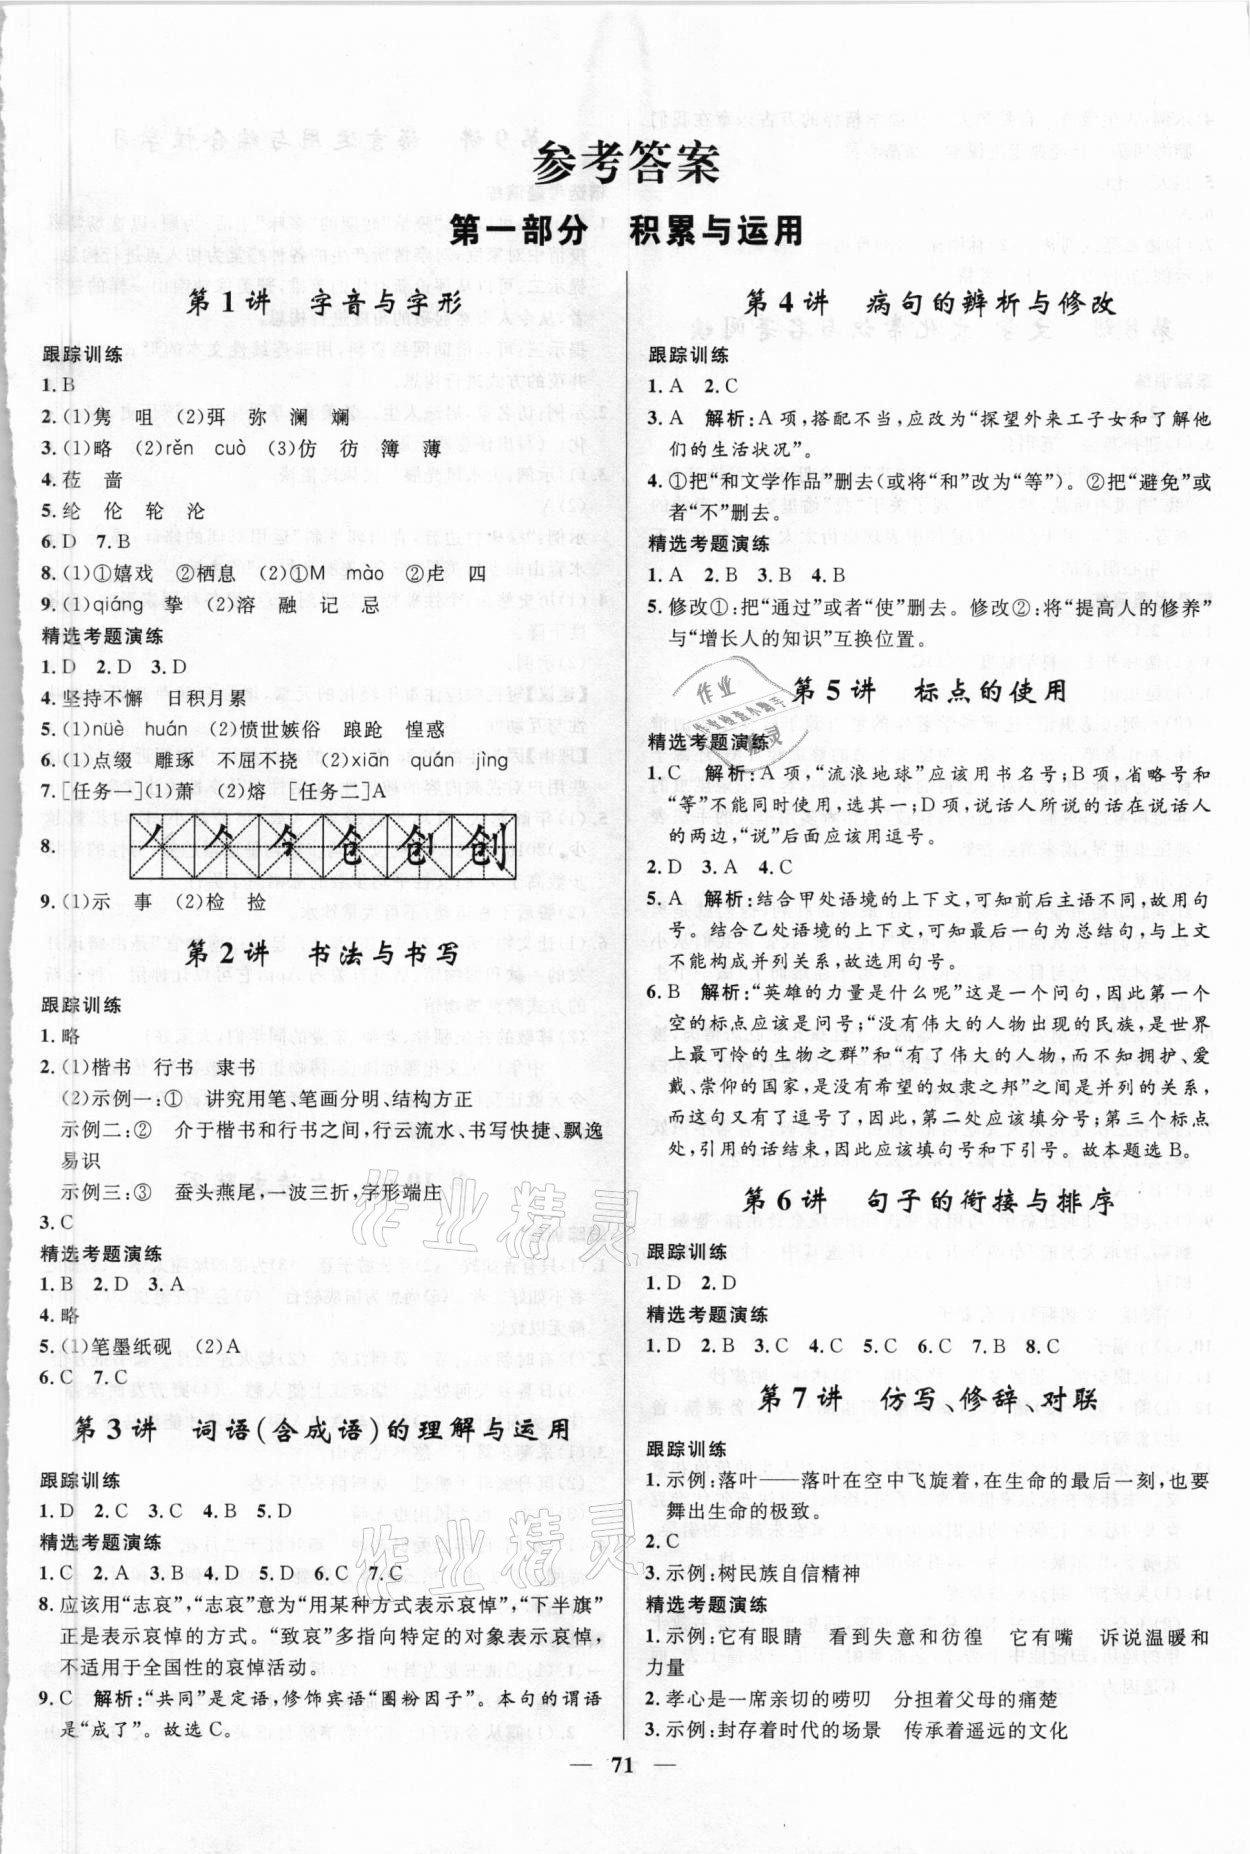 参考答案
第一部分　积累与运用
第1讲　字音与字形
跟踪训练
1.B
2.(1)隽　咀　(2)弭　弥　澜　斓
3.(1)略　(2)rěn　cuò　(3)仿　彷　簿　薄
4.莅　啬
5.纶　伦　轮　沦
6.D　7.B
8.(1)①嬉戏　②栖息　(2)①M　mào　②虍　四
9.(1)qiáng　挚　(2)溶　融　记　忌
精选考题演练
1.D　2.D　3.D
4.坚持不懈　日积月累
5.(1)nüè　huán　(2)愤世嫉俗　踉跄　惶惑
6.(1)点缀　雕琢　不屈不挠　(2)xiān　quán　jìng
7.[任务一](1)萧　(2)熔　[任务二]A
8.
9.(1)示　事　(2)检　捡
第2讲　书法与书写
跟踪训练
1.略
2.(1)楷书　行书　隶书
(2)示例一:①　讲究用笔、笔画分明、结构方正
示例二:②　介于楷书和行书之间,行云流水、书写快捷、飘逸
易识
示例三:③　蚕头燕尾,一波三折,字形端庄
3.C
精选考题演练
1.B　2.D　3.A
4.略
5.(1)笔墨纸砚　(2)A
6.C　7.C
第3讲　词语(含成语)的理解与运用
跟踪训练
1.D　2.C　3.C　4.B　5.D
精选考题演练
1.C　2.A　3.B　4.D　5.D　6.C　7.C
8.应该用“志哀”,“志哀”意为“用某种方式表示哀悼”,“下半旗”
正是表示哀悼的方式。“致哀”多指向特定的对象表示哀悼,
不适用于全国性的哀悼活动。
9.C　解析:“共同”是定语,修饰宾语“圈粉因子”。本句的谓语
是“成了”。故选C。
第4讲　病句的辨析与修改
跟踪训练
1.A　2.C
3.A　解析:A项,搭配不当,应改为“探望外来工子女和了解他
们的生活状况”。
4.①把“和文学作品”删去(或将“和”改为“等”)。②把“避免”或
者“不”删去。
精选考题演练
1.A　2.B　3.B　4.B
5.修改①:把“通过”或者“使”删去。修改②:将“提高人的修养”
与“增长人的知识”互换位置。
第5讲　标点的使用
精选考题演练
1.C　解析:A项,“流浪地球”应该用书名号;B项,省略号和
“等”不能同时使用,选其一;D项,说话人所说的话在说话人
的两边,“说”后面应该用逗号。
2.D　3.A　4.C
5.A　解析:结合甲处语境的上下文,可知前后主语不同,故用句
号。结合乙处语境的上下文,可知最后一句为总结句,与上文
不能构成并列关系,故选用句号。
6.B　解析:“英雄的力量是什么呢”这是一个问句,因此第一个
空的标点应该是问号;“没有伟大的人物出现的民族,是世界
上最可怜的生物之群”和“有了伟大的人物,而不知拥护、爱
戴、崇仰的国家,是没有希望的奴隶之邦”之间是并列的关系,
而这句又有了逗号了,因此,第二处应该填分号;第三个标点
处,引用的话结束,因此应该填句号和下引号。故本题选B。
第6讲　句子的衔接与排序
跟踪训练
1.D　2.D
精选考题演练
1.D　2.B　3.C　4.C　5.C　6.C　7.B　8.C
第7讲　仿写、修辞、对联
跟踪训练
1.示例:落叶——落叶在空中飞旋着,在生命的最后一刻,也要
舞出生命的极致。
2.C
3.示例:树民族自信精神
精选考题演练
1.示例:它有眼睛　看到失意和彷徨　它有嘴　诉说温暖和
力量
2.孝心是一席亲切的唠叨　分担着父母的痛楚
3.示例:封存着时代的场景　传承着遥远的文化
— 71 —
作业精灵
作业精灵